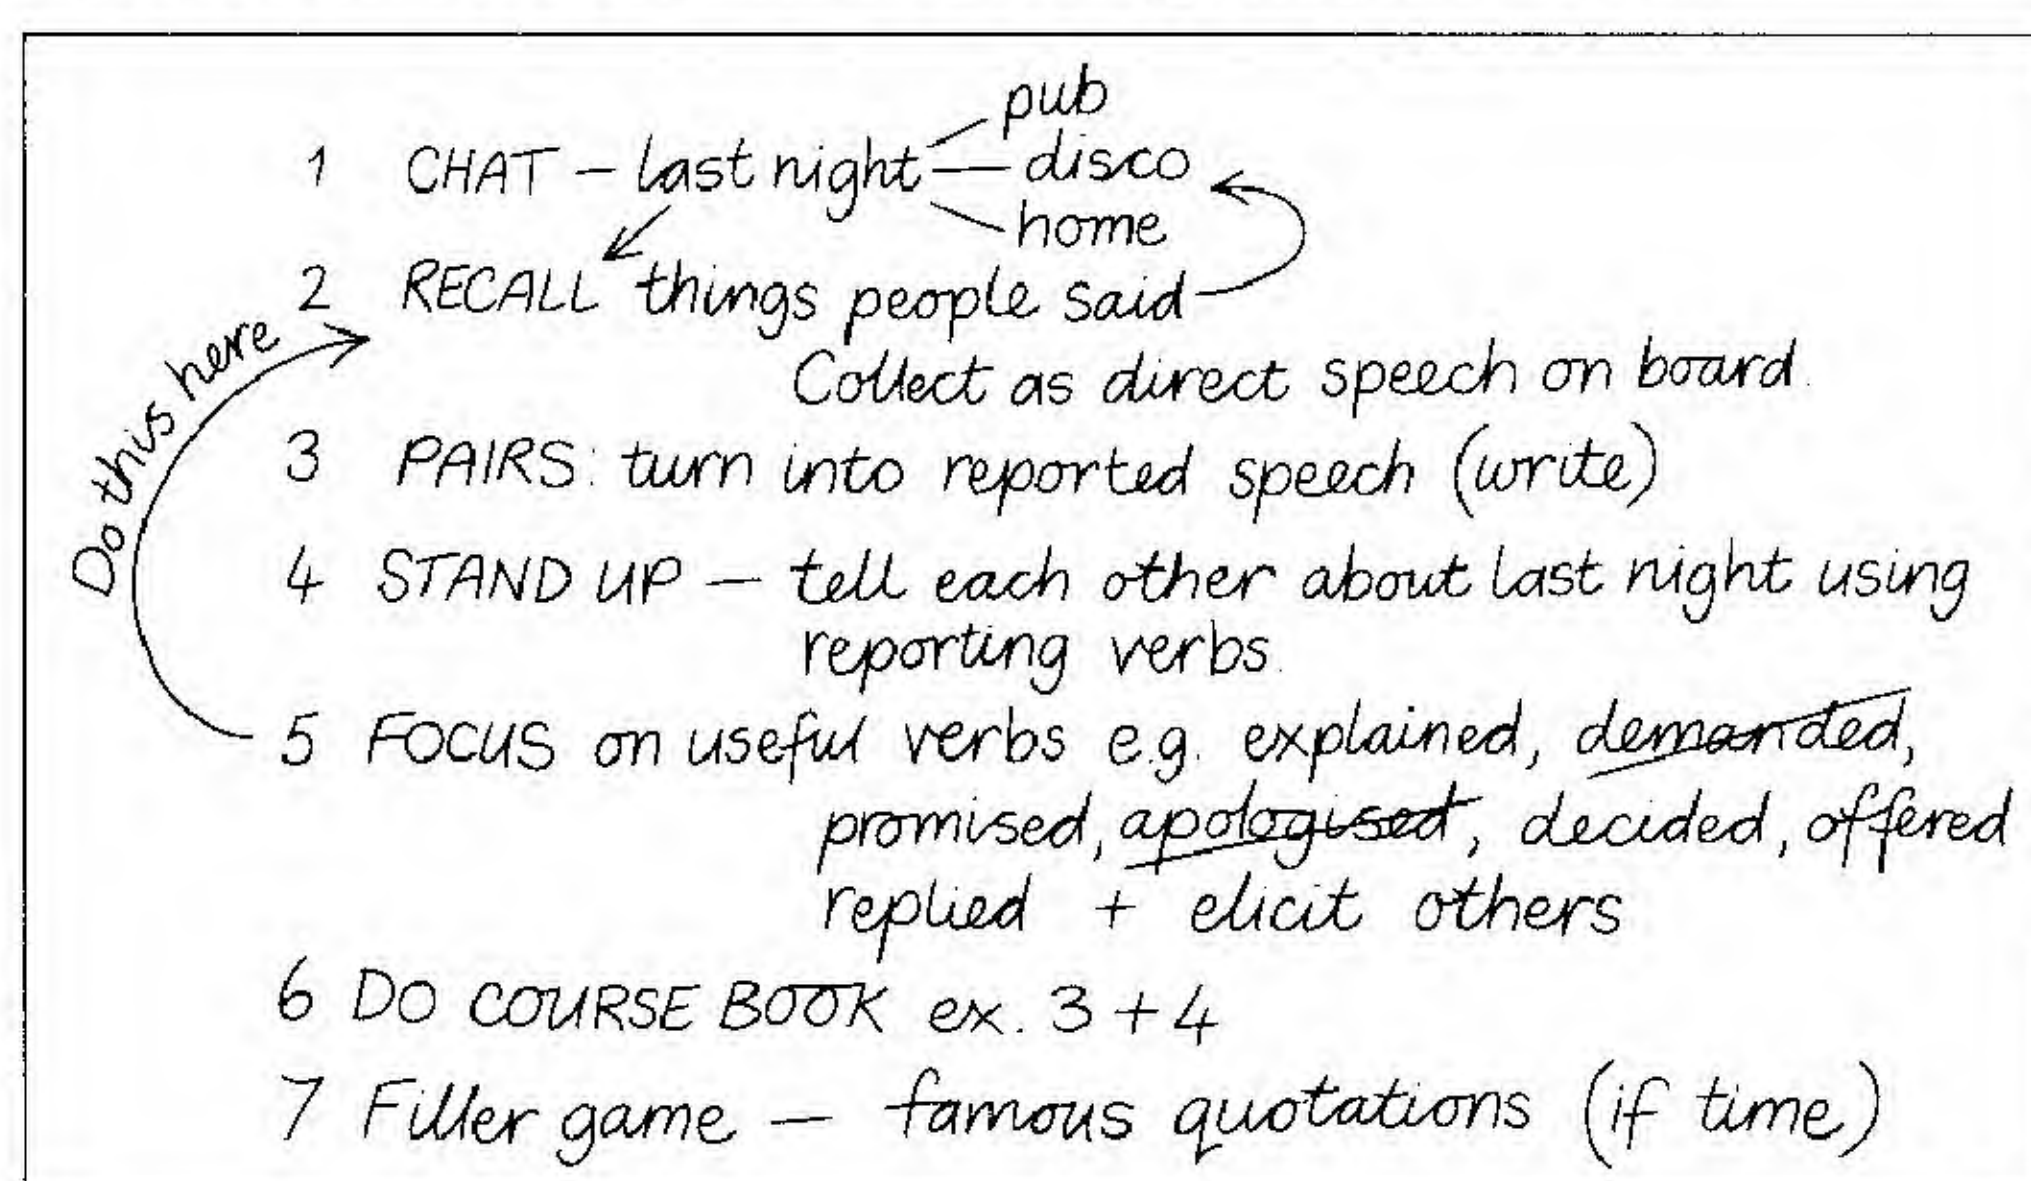 pub
1 CHAT – last night — disco
home
2 RECALL things people said
Do this here
Collect as direct speech on board.
3 PAIRS: turn into reported speech (write)
4 STAND UP — tell each other about last night using
reporting verbs.
5 FOCUS on useful verbs e.g. explained, demanded,
promised, apologised, decided, offered
replied + elicit others
6 DO COURSE BOOK ex. 3 + 4
7 Filler game — famous quotations (if time)